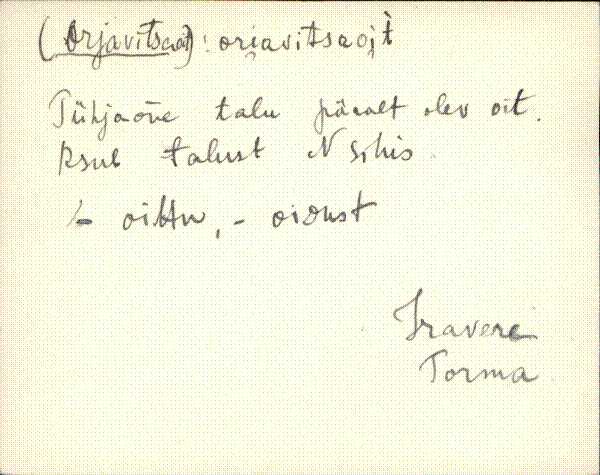 (Orjavitsaoit): oriavitsaojt̀
Tühjaõue talu päralt olev oit.
Asub talust N sihis.
/- oittu, - oidust
Iravere
Torma